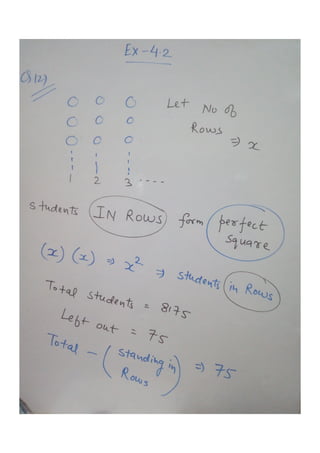 Ex-4.2
Q(12)
Let No of
Rows
⇒ x
1 2 3 ----
students IN ROWS form perfect
square
(x) (x) ⇒ x² ⇒ students in Rows
Total students = 8175
Left out = 75
Total - (standing in
Rows) ⇒ 75